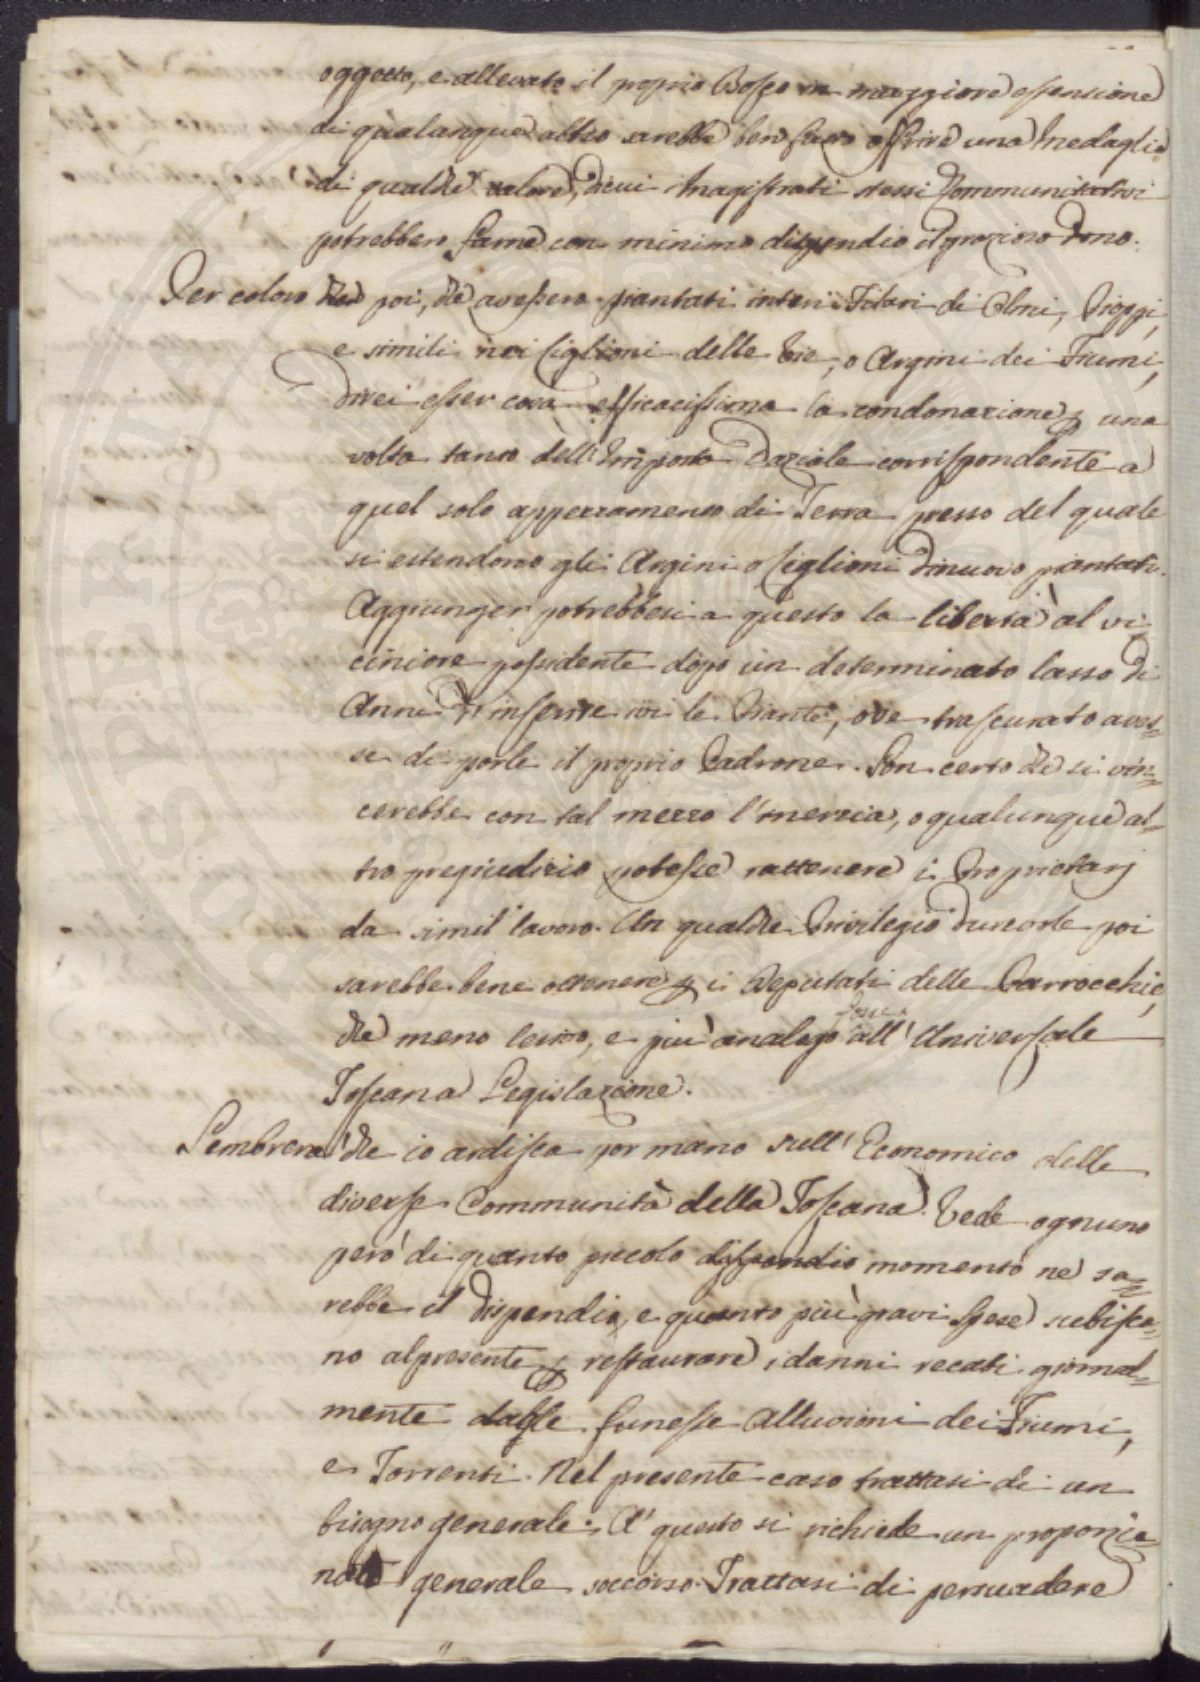 oggetto, e allevato il proprio Bosco in maggiore estensione
di qualunque altro sarebbe ben fatto offrire una Medaglia
di qualche valore, di cui i Magistrati stessi Communitativi
potrebbero farne con minimo dispendio il grazioso dono.
Per coloro poi, che avessero piantati interi Filari di Olmi, Pioppi,
e simili nei Ciglioni delle Vie, o Argini dei Fiumi,
direi esser cosa efficacissima la condonazione p una
volta tanto dell'Imposta Daziale corrispondente a
quel solo appezzamento di Terra presso del quale
si estendono gli Argini o Ciglioni dinuovo piantati.
Aggiunger potrebbesi a questo la libertà al vi
ciniore possidente dopo un determinato lasso di
Anni d'inserire ivi le Piante, ove trascurato aves=
se di porle il proprio Padrone. Son certo che si vin=
cerebbe con tal mezzo l'inerzia, o qualunque al=
tro pregiudizio potesse rattenere i Proprietarj
da simil lavoro. Un qualche Privilegio durevole poi
sarebbe bene ottenere p i Deputati delle Parrocchie,
che meno leso, e più analogo fosse all'Universale
Toscana Legislazione.
Sembrerà che io ardisca por mano sull'Economico delle
diverse Communità della Toscana. Vede ognuno
però di quanto piccolo dispendio momento ne sa=
rebbe il dispendio, e quanto più gravi spese subisca=
no al presente p restaurare i danni recati giornal=
mente dalle funeste alluvioni dei Fiumi,
e Torrenti. Nel presente caso trattasi di un
bisogno generale. A' questo si richiede un proporzio=
nato generale soccorso. Trattasi di persuadere